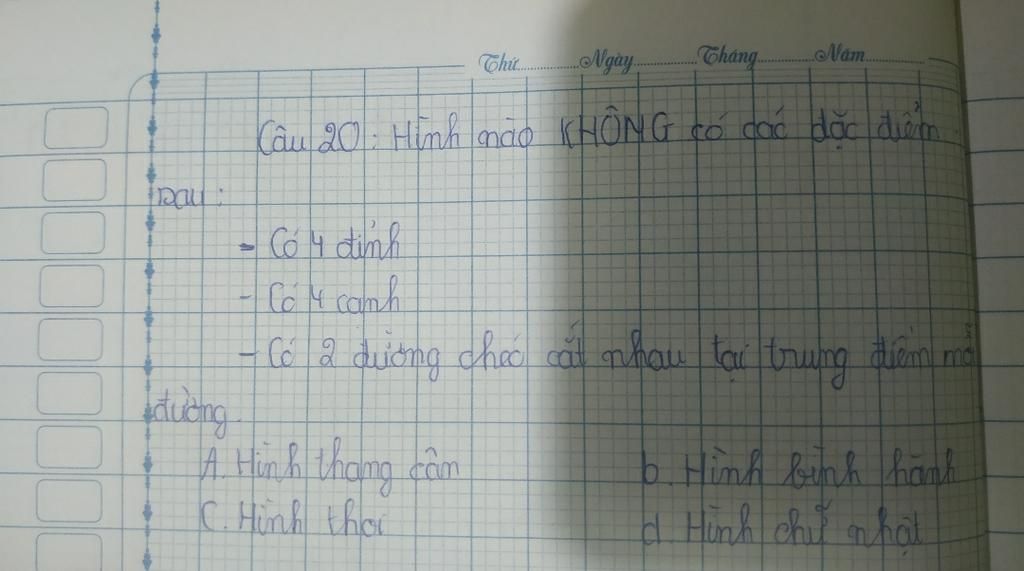 Thứ Ngày Tháng Năm
Câu 20: Hình nào KHÔNG có các đặc điểm
sau:
- Có 4 đỉnh
- Có 4 cạnh
- Có 2 đường chéo cắt nhau tại trung điểm mỗi
đường.
A. Hình thang cân b. Hình bình hành
C. Hình thoi d. Hình chữ nhật